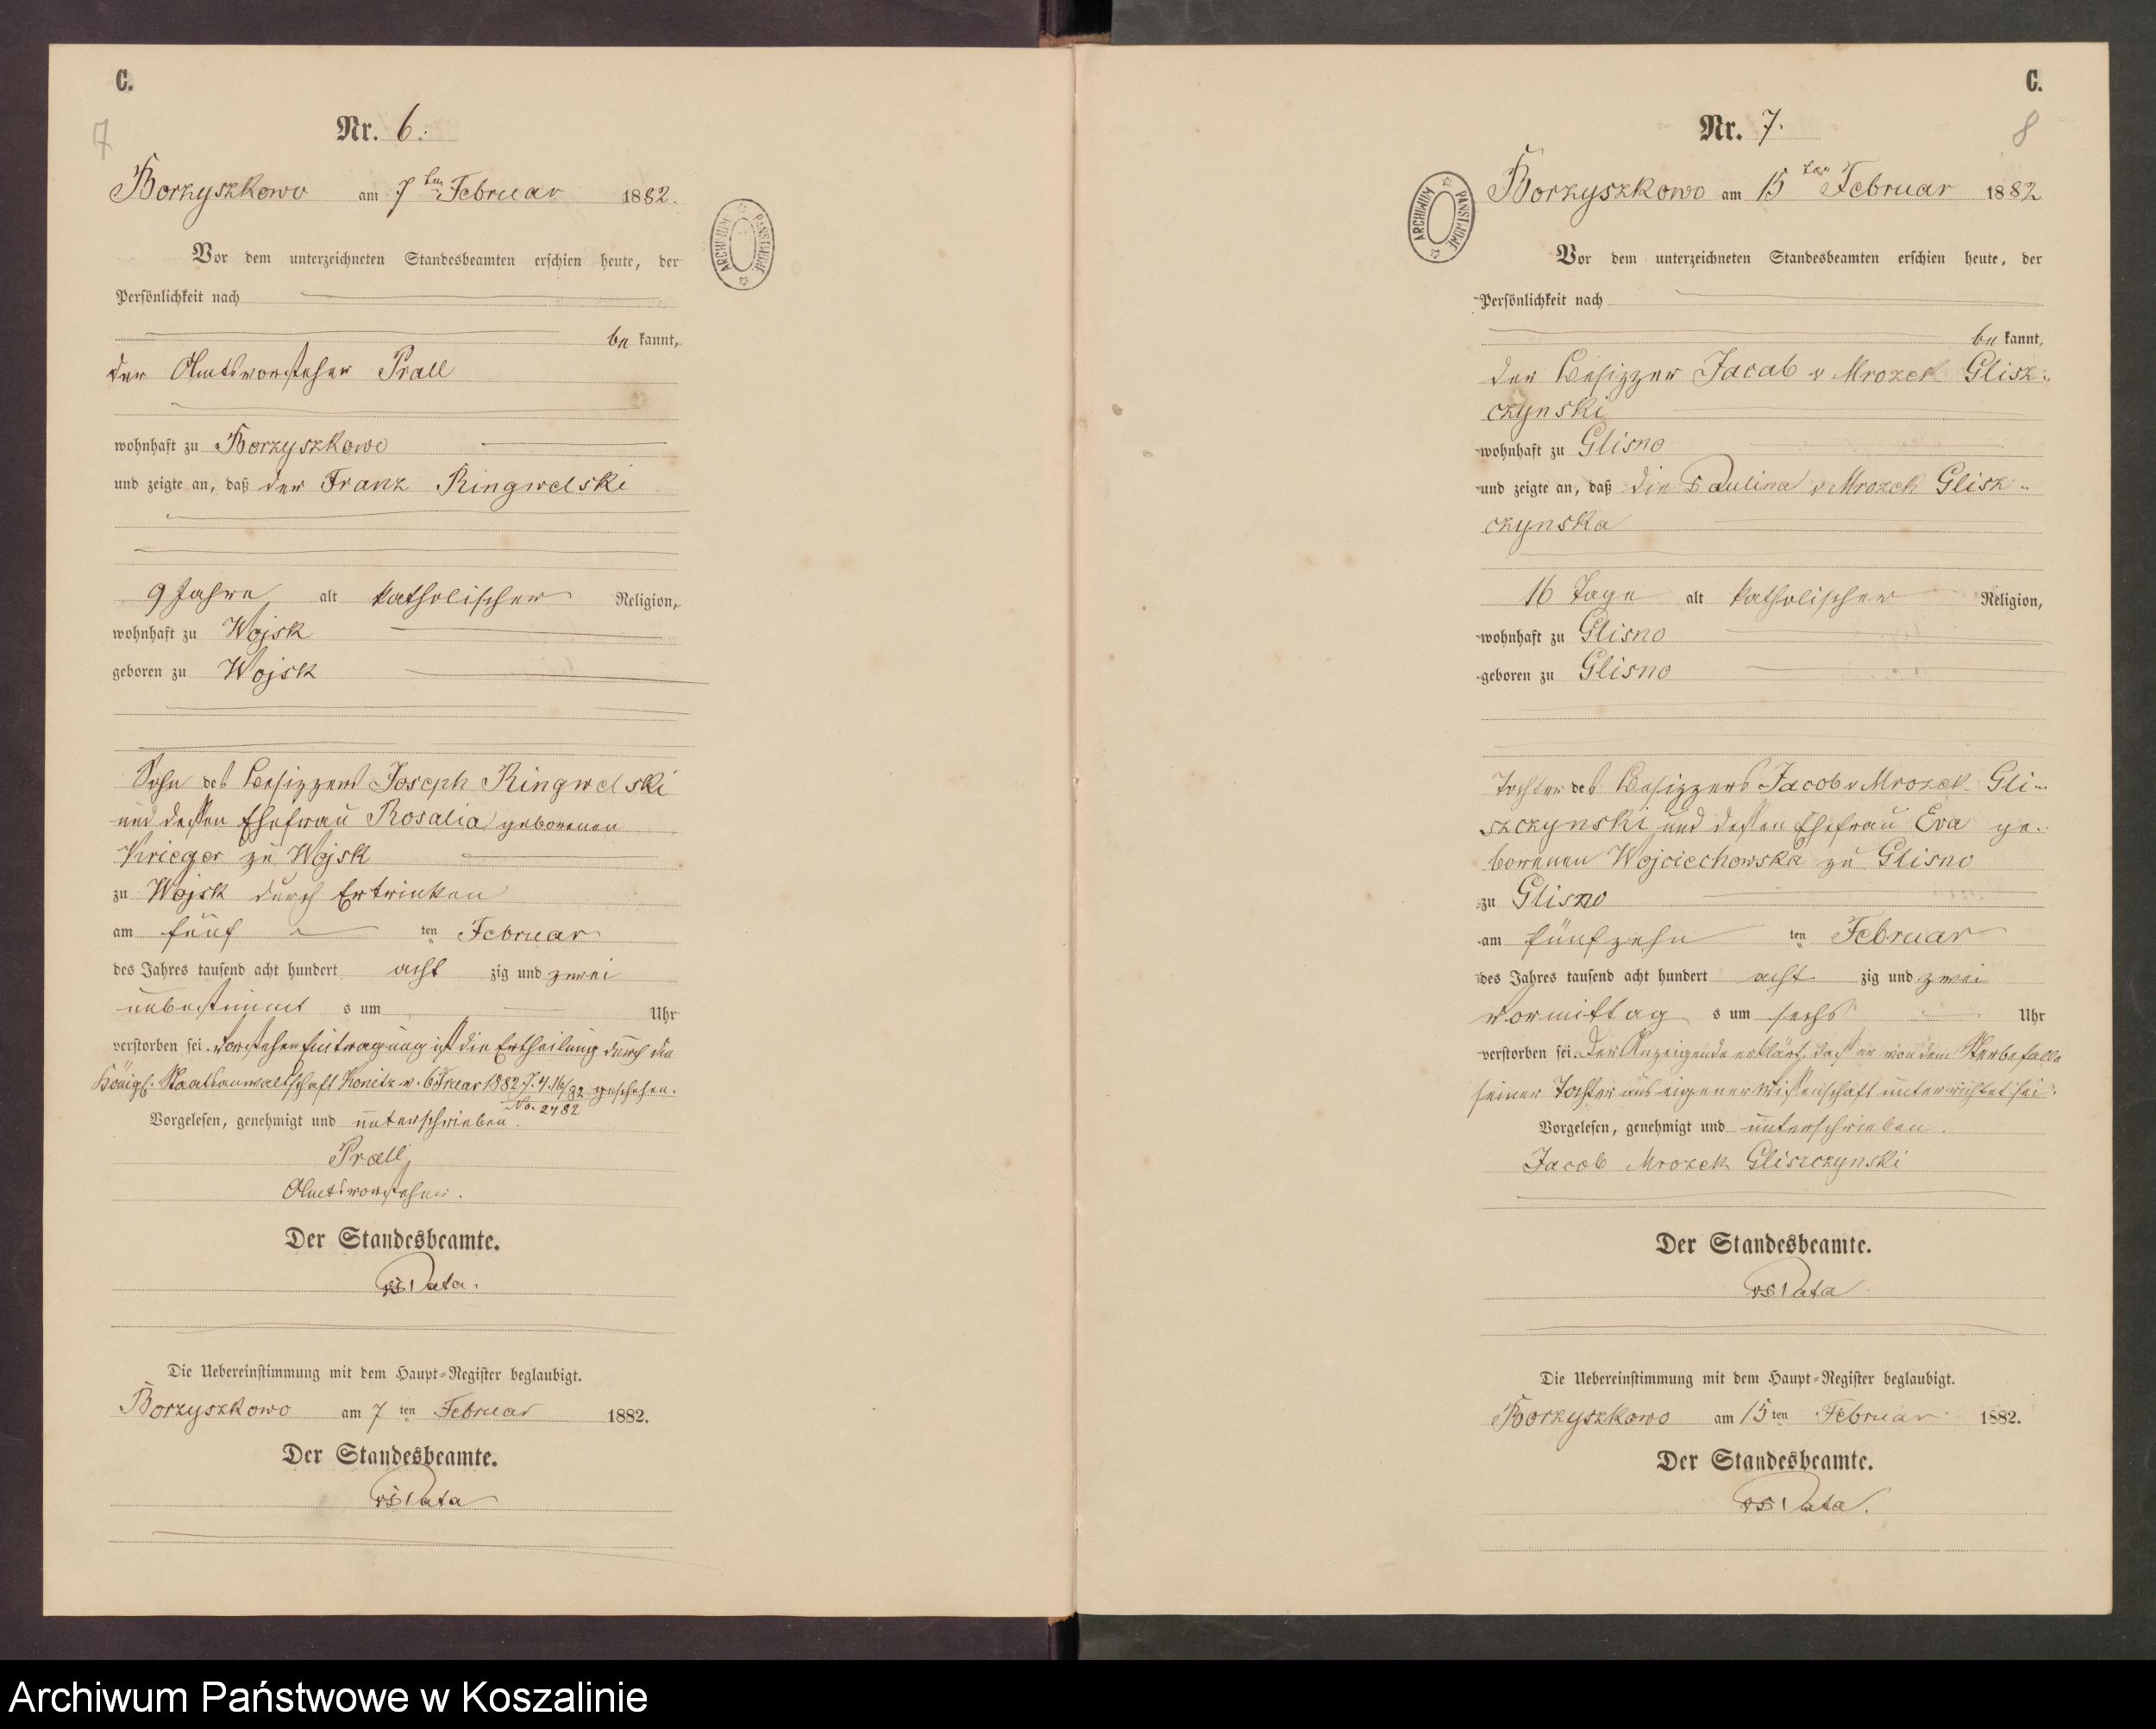 C.
7
Nr. 6.
Borzyszkowo am 7ten Februar 1882.
Vor dem unterzeichneten Standesbeamten erschien heute, der
Persönlichkeit nach
be kannt,
der Amtsvorsteher Prall
wohnhaft zu Borzyszkowo
und zeigte an, daß der Franz Ringwelski
9 Jahre alt katholischer Religion,
wohnhaft zu Wojsk
geboren zu Wojsk
Sohn des Besizzers Joseph Ringwelski
und dessen Ehefrau Rosalia geborenen
Krieger zu Wojsk
zu Wojsk durch Ertrinken
am fünf ten Februar
des Jahres tausend acht hundert acht zig und zwei
unbestimmt s um Uhr
verstorben sei. Vorstehen Eintragung ist die Ertheilung durch die
Königl. Staatsanwaltschaft Konitz v. 6 J. 4. 16/82 geschehen.
No. 2482
Vorgelesen, genehmigt und unterschrieben.
Prall
Amtsvorsteher.
Der Standesbeamte.
Pata.
Die Uebereinstimmung mit dem Haupt-Register beglaubigt.
Borzyszkowo am 7 ten Februar 1882.
Der Standesbeamte.
Pata
C.
8
Nr. 7.
Borzyszkowo am 15ten Februar 1882
ARCHIWUM PAŃSTWOWE
ARCHIWUM PAŃSTWOWE
Vor dem unterzeichneten Standesbeamten erschien heute, der
Persönlichkeit nach
be kannt,
der Besizzer Jacob v Mrozek Glisz-
czynski
wohnhaft zu Glisno
und zeigte an, daß die Paulina v Mrozek Glisz-
czynska
16 Tage alt katholischer Religion,
wohnhaft zu Glisno
geboren zu Glisno
Tochter des Besizzers Jacob v Mrozek Gli-
szczynski und dessen Ehefrau Eva ge-
borenen Wojciechowska zu Glisno
zu Glisno
am fünfzehn ten Februar
des Jahres tausend acht hundert acht zig und zwei
vormittag s um sechs Uhr
verstorben sei. Der Anzeigende erklärt, dass er von dem Sterbefalle
seiner Tochter aus eigener Wissenschaft unterrichtet sei.
Vorgelesen, genehmigt und unterschrieben.
Jacob Mrozek Gliszczynski
Der Standesbeamte.
Pata
Die Uebereinstimmung mit dem Haupt-Register beglaubigt.
Borzyszkowo am 15 ten Februar 1882.
Der Standesbeamte.
Pata.
Archiwum Państwowe w Koszalinie